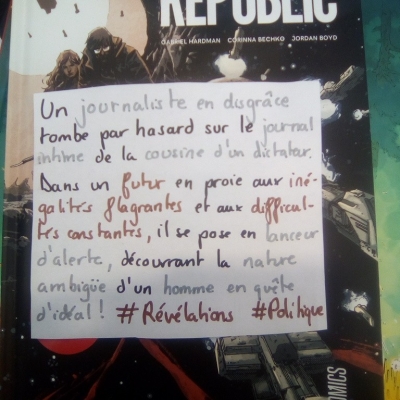 REPUBLIC
GABRIEL HARDMAN CORINNA BECHKO JORDAN BOYD
Un journaliste en disgrâce
tombe par hasard sur le journal
intime de la cousine d'un dictateur.
Dans un futur en proie aux iné-
galités flagrantes et aux difficul-
tés constantes, il se pose en lanceur
d'alerte, découvrant la nature
ambigüe d'un homme en quête
d'idéal ! #Révélations #Politique
COMICS